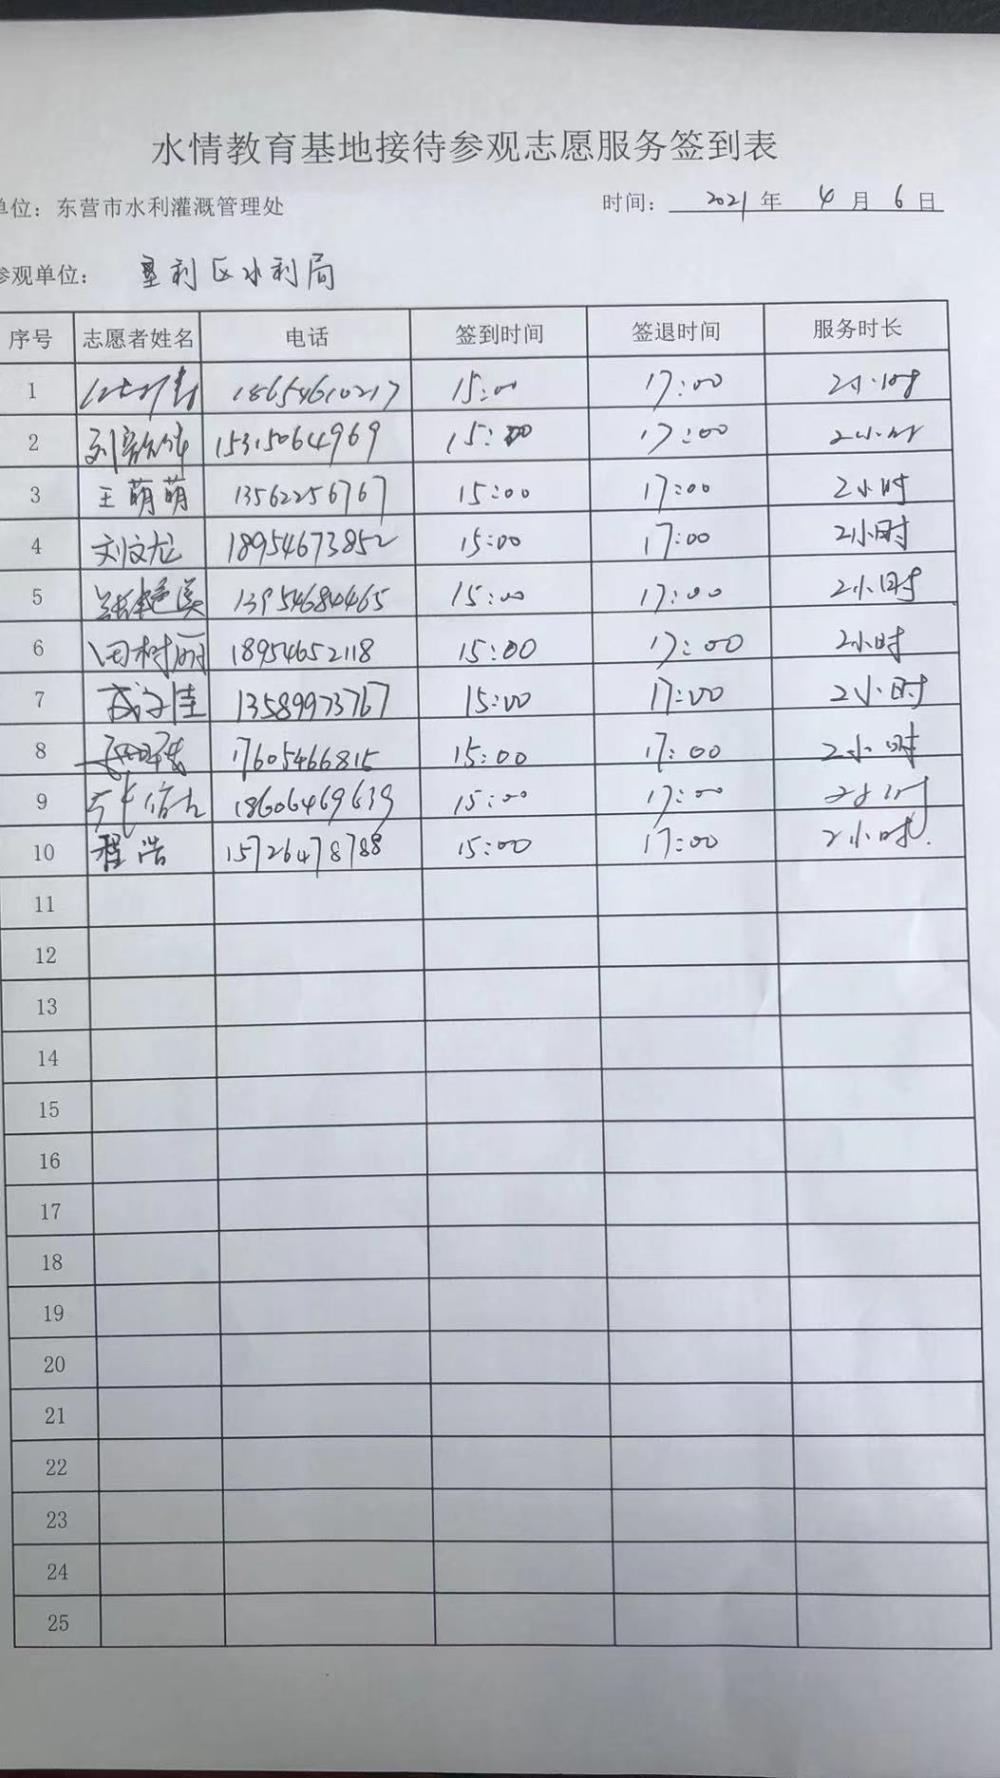 水情教育基地接待参观志愿服务签到表
单位：东营市水利灌溉管理处 时间： 2021 年 4 月 6 日
参观单位： 垦利区水利局
序号 志愿者姓名 电话 签到时间 签退时间 服务时长
1 18654610217 15:00 17:00 2小时
2 15315064969 15:00 17:00 2小时
3 王萌萌 13562256767 15:00 17:00 2小时
4 刘文龙 18954673852 15:00 17:00 2小时
5 13954684465 15:00 17:00 2小时
6 田树丽 18954652118 15:00 17:00 2小时
7 13589973767 15:00 17:00 2小时
8 17605466815 15:00 17:00 2小时
9 18606469639 15:00 17:00 2小时
10 程浩 15726478788 15:00 17:00 2小时.
11
12
13
14
15
16
17
18
19
20
21
22
23
24
25